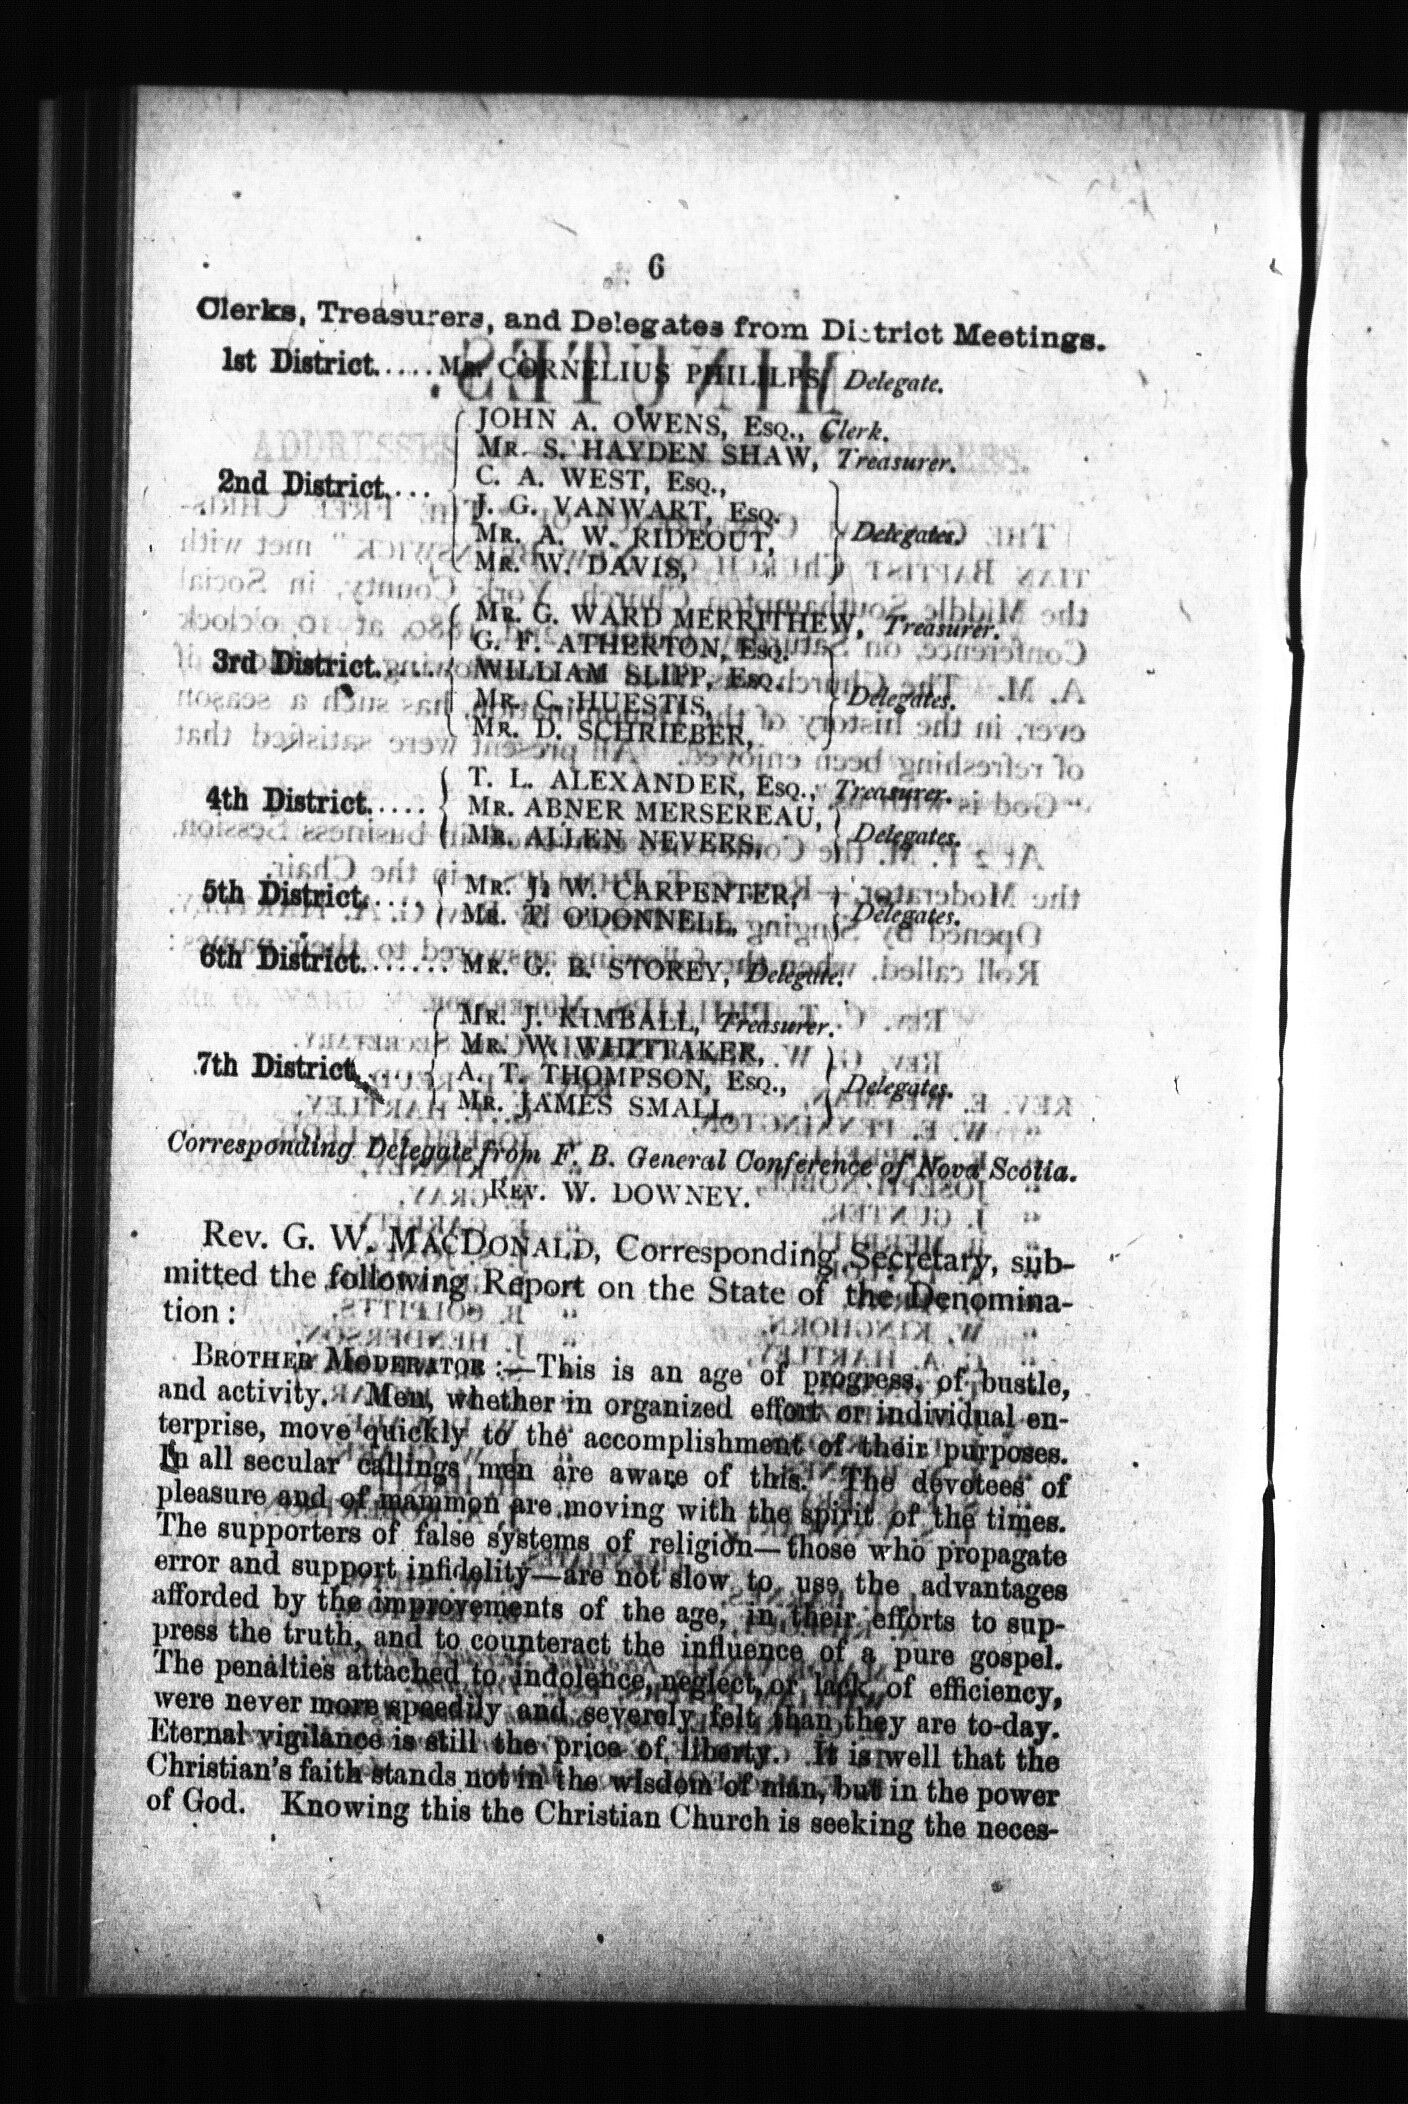 6
Clerks, Treasurers, and Delegates from District Meetings.
1st District.....MR. CORNELIUS PHILILPS, Delegate.
JOHN A. OWENS, ESQ., Clerk.
MR. S. HAYDEN SHAW, Treasurer.
2nd District....
C. A. WEST, ESQ.,
J. G. VANWART, ESQ.
MR. A. W. RIDEOUT,
MR. W. DAVIS,
Delegates.
MR. G. WARD MERRITHEW, Treasurer.
G. F. ATHERTON, ESQ.
3rd District.....
WILLIAM SLIPP, ESQ.,
MR. C. HUESTIS,
MR. D. SCHRIEBER,
Delegates.
T. L. ALEXANDER, ESQ., Treasurer.
4th District.....
MR. ABNER MERSEREAU,
MR. ALLEN NEVERS,
Delegates.
5th District.....
MR. J. W. CARPENTER,
MR. T. O'DONNELL,
Delegates.
6th District.......MR. G. B. STOREY, Delegate.
MR. J. KIMBALL, Treasurer.
MR. W. WHITTAKER,
7th District.....
A. T. THOMPSON, ESQ.,
MR. JAMES SMALL,
Delegates.
Corresponding Delegate from F. B. General Conference of Nova Scotia.
REV. W. DOWNEY.
Rev. G. W. MACDONALD, Corresponding Secretary, sub-
mitted the following Report on the State of the Denomina-
tion:
BROTHER MODERATOR:—This is an age of progress, of bustle,
and activity. Men, whether in organized effort or individual en-
terprise, move quickly to the accomplishment of their purposes.
In all secular callings men are aware of this. The devotees of
pleasure and of mammon are moving with the spirit of the times.
The supporters of false systems of religion—those who propagate
error and support infidelity—are not slow to use the advantages
afforded by the improvements of the age, in their efforts to sup-
press the truth, and to counteract the influence of a pure gospel.
The penalties attached to indolence, neglect, or lack of efficiency,
were never more speedily and severely felt than they are to-day.
Eternal vigilance is still the price of liberty. It is well that the
Christian's faith stands not in the wisdom of man, but in the power
of God. Knowing this the Christian Church is seeking the neces-